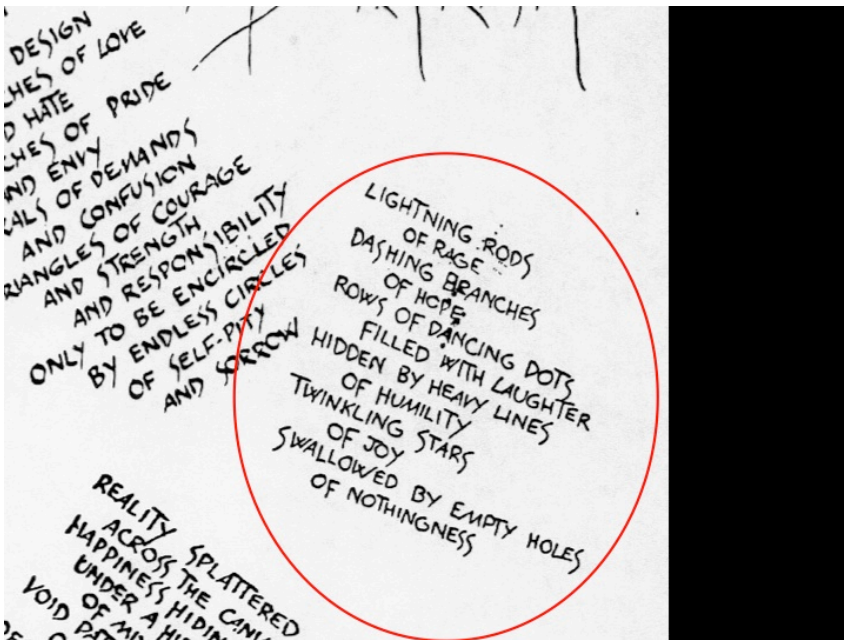 DESIGN
CHES OF LOVE
HATE
CHES OF PRIDE
AND ENVY
ALS OF DEMANDS
AND CONFUSION
RIANGLES OF COURAGE
AND STRENGTH
AND RESPONSIBILITY
ONLY TO BE ENCIRCLED
BY ENDLESS CIRCLES
OF SELF-PITY
AND SORROW
LIGHTNING RODS
OF RAGE
DASHING BRANCHES
OF HOPE
ROWS OF DANCING DOTS
FILLED WITH LAUGHTER
HIDDEN BY HEAVY LINES
OF HUMILITY
TWINKLING STARS
OF JOY
SWALLOWED BY EMPTY HOLES
OF NOTHINGNESS
REALITY SPLATTERED
ACROSS THE CANV
HAPPINESS HIDIN
UNDER A
OF
VOID